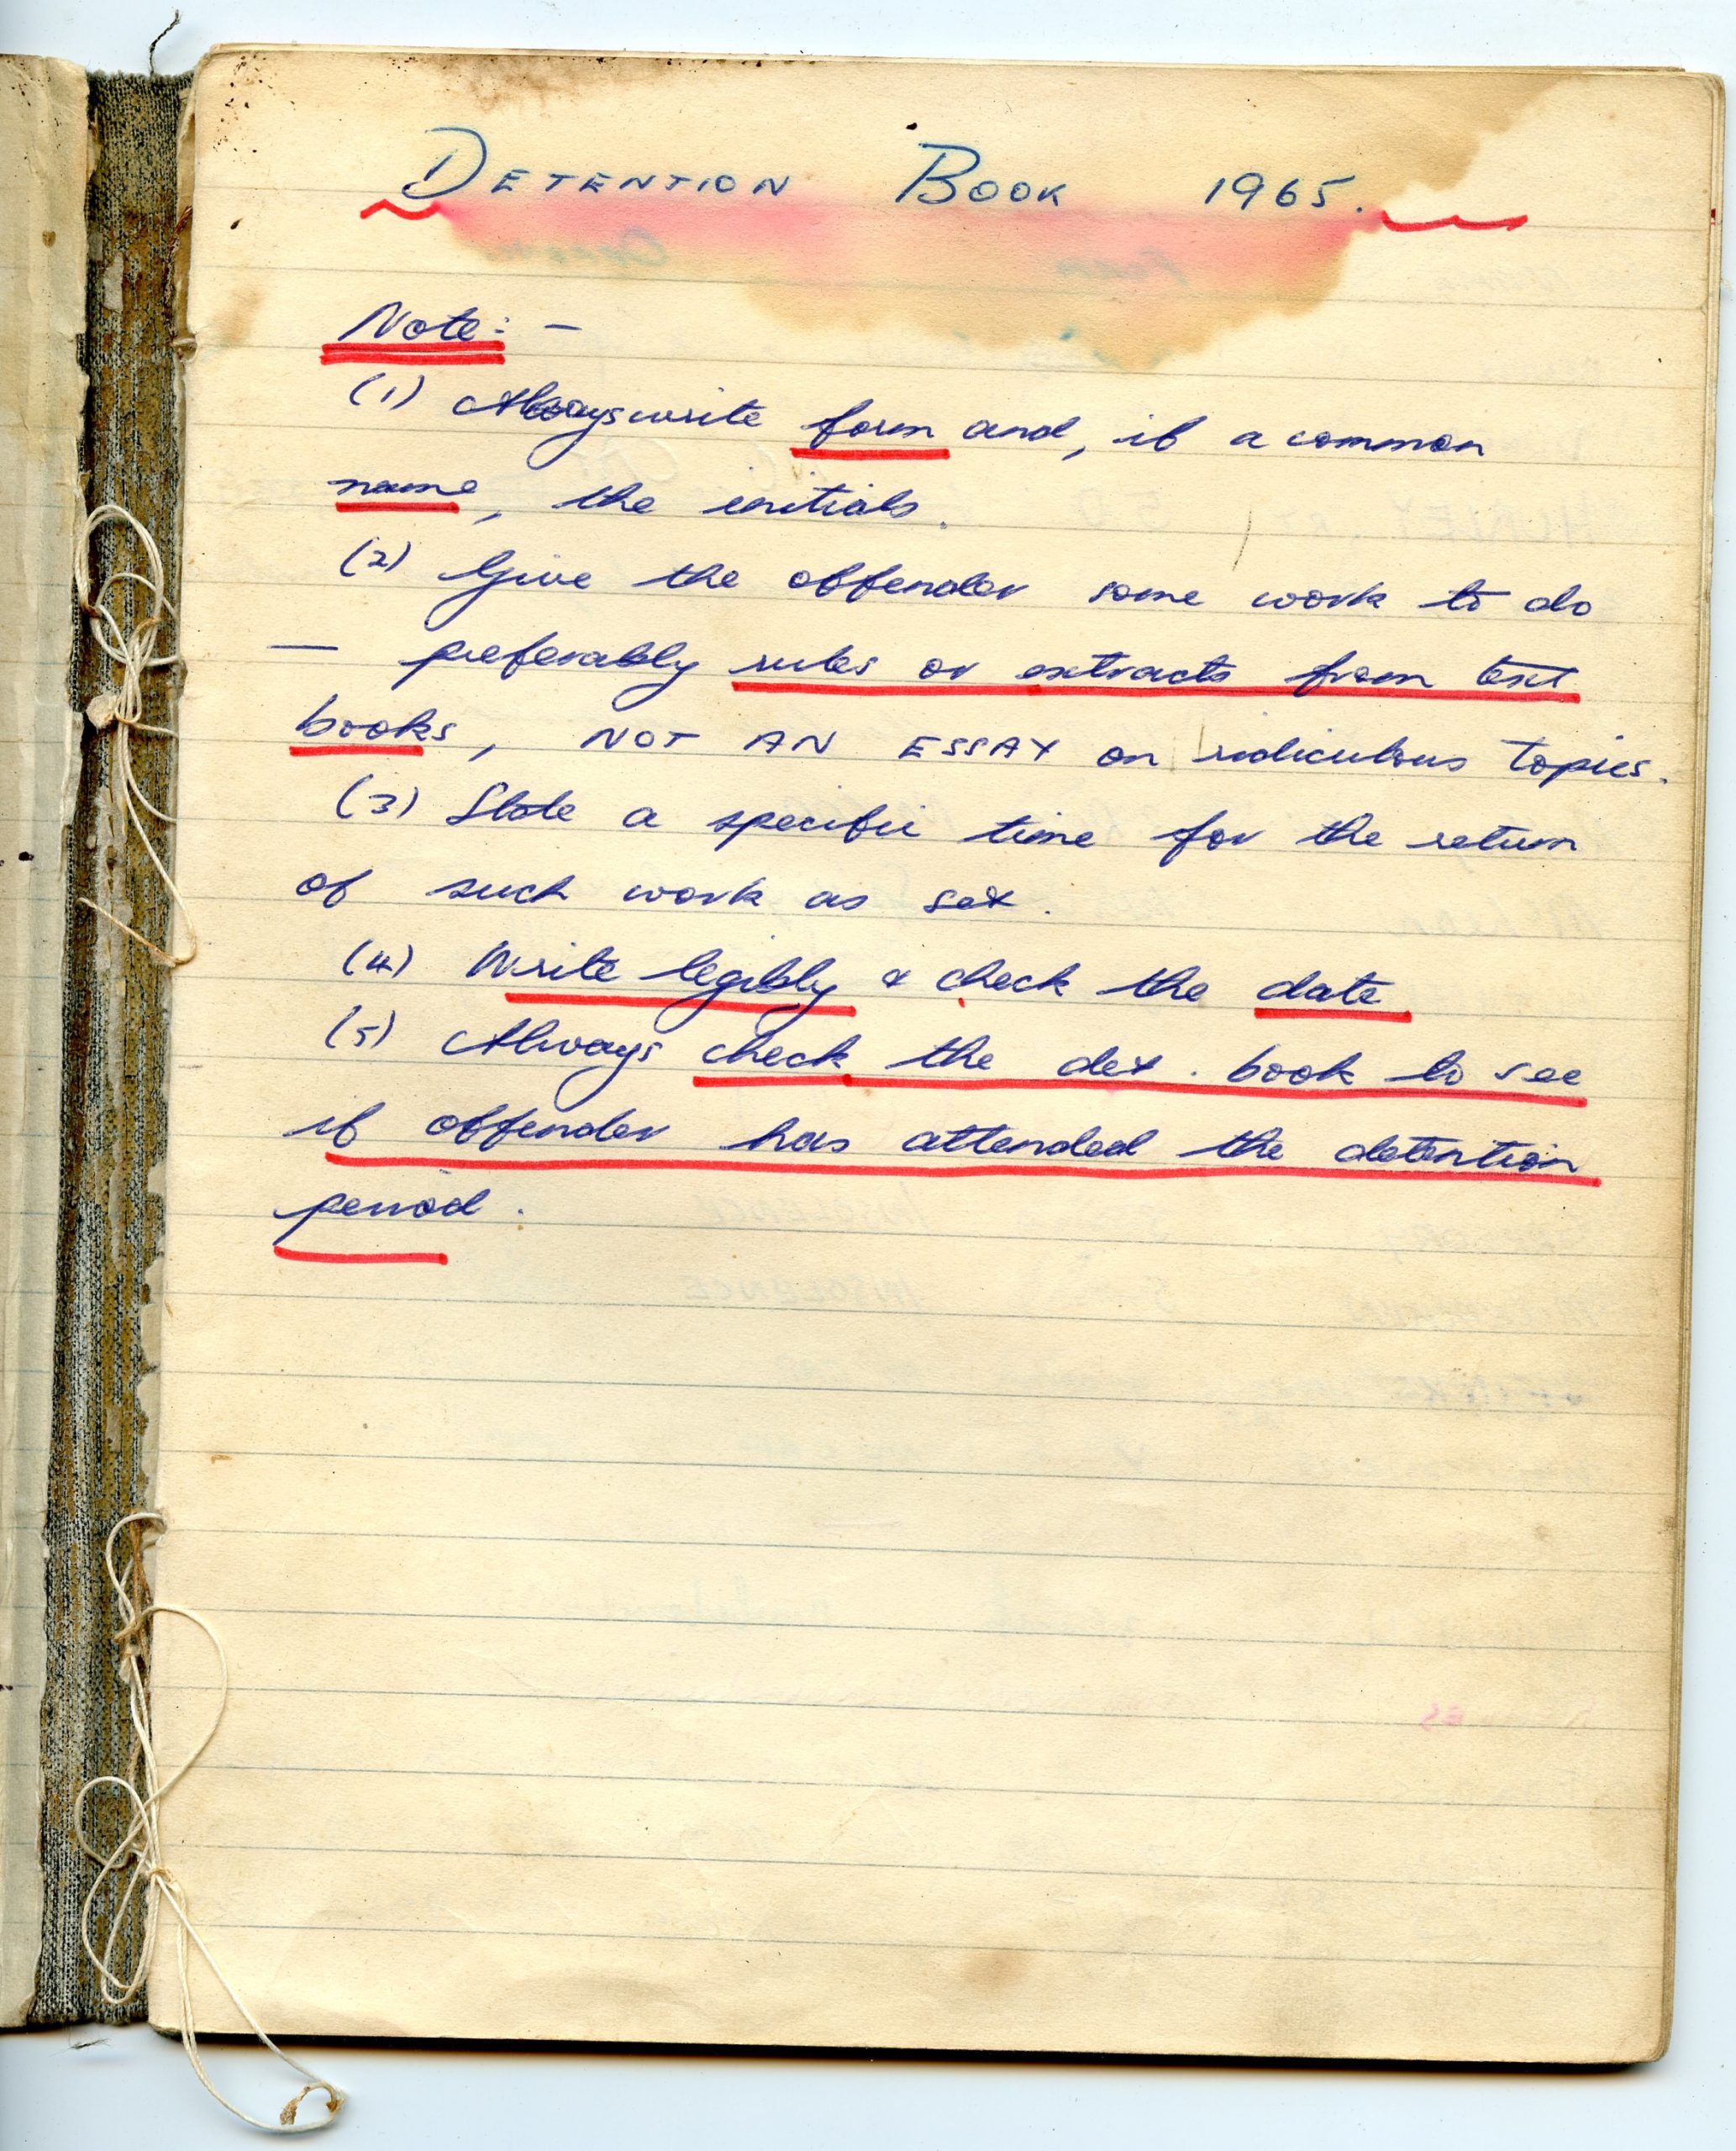 DETENTION BOOK 1965.
Note: -
(1) Always write form and, if a common
name, the initials.
(2) Give the offender some work to do
— preferably rules or extracts from text
books, NOT AN ESSAY on ridiculous topics.
(3) State a specific time for the return
of such work as set.
(4) Write legibly & check the date
(5) Always check the det. book to see
if offender has attended the detention
period.